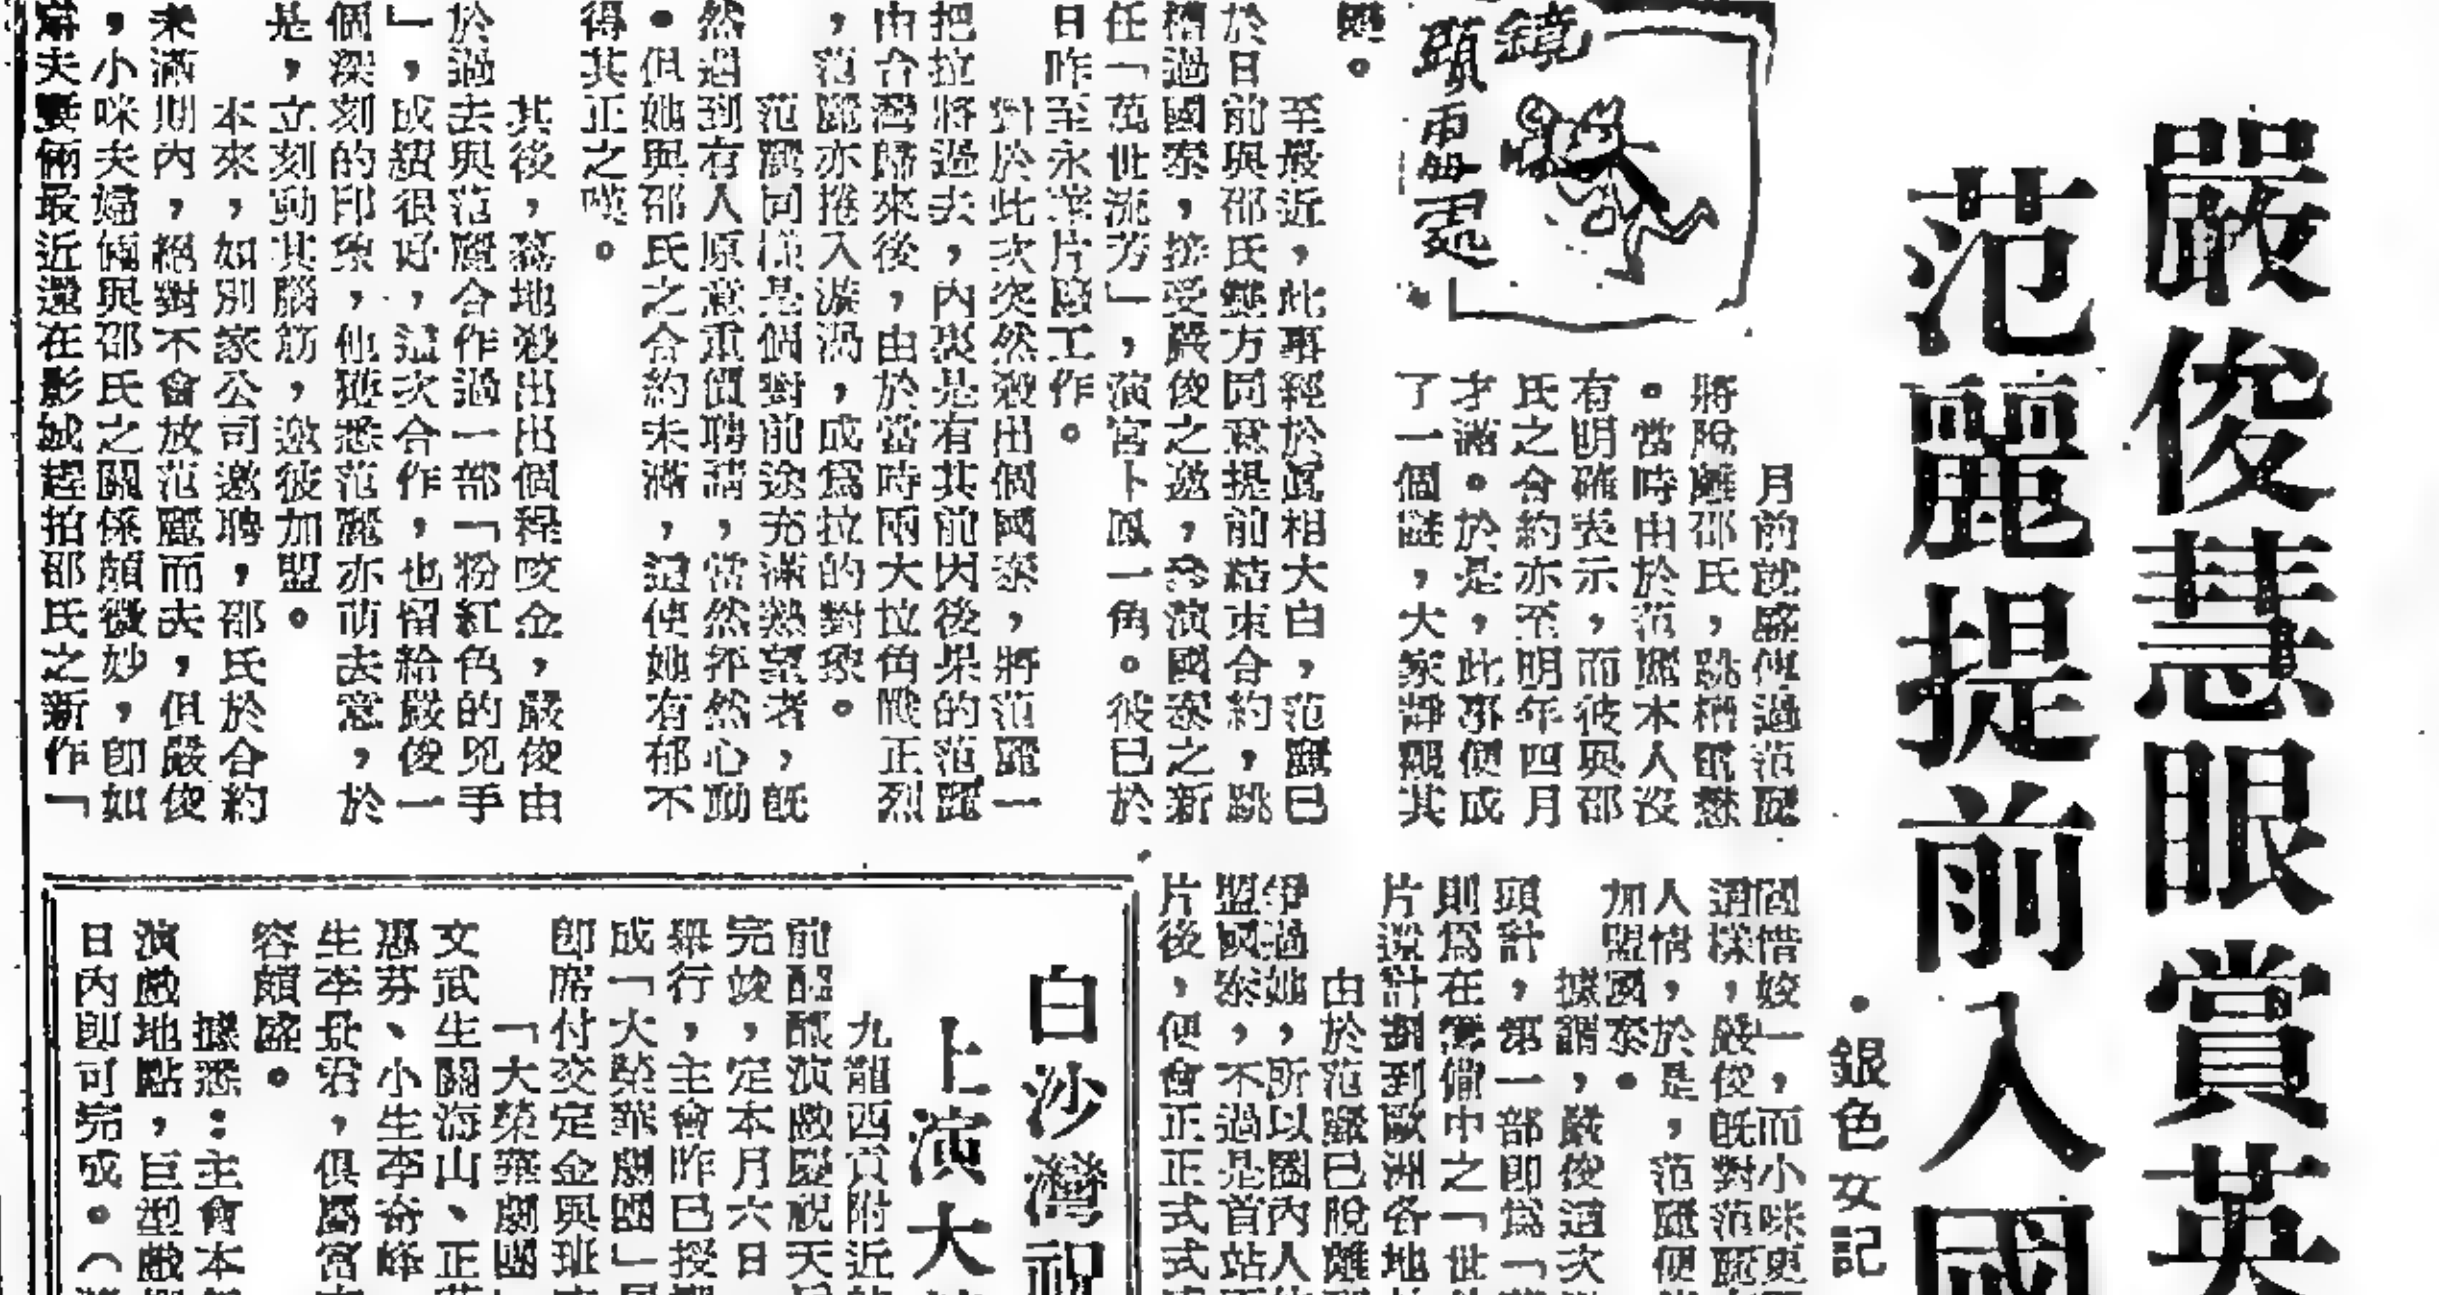 嚴俊慧眼賞英
范麗提前入國
•銀色女記
鏡頭
月前就盛傳過范麗
將脫離邵氏,跳槽電懋
。當時由於范麗本人沒
有明確表示,而彼與邵
氏之合約亦至明年四月
才滿。於是,此事便成
了一個謎,大家靜觀其
變。
至最近,此事經於眞相大白,范麗已
於日前與邵氏雙方同意提前結束合約,跳
槽過國泰,接受嚴俊之邀,參演國泰之新
任「萬世流芳」,演宮卜鳳一角。彼已於
日昨至永華片廠工作。
對於此次突然殺出個國泰,將范麗一
把拉將過去,內裏是有其前因後果的范麗
由台灣歸來後,由於當時兩大拉角戰正烈
,范麗亦捲入漩渦,成爲拉的對象。
范麗同樣是個對前途充滿熱望者,旣
然遇到有人原意重價聘請,當然怦然心動
。但她與邵氏之合約未滿,這使她有郁不
得其正之嘆。
其後,驀地殺出出個程咬金,嚴俊由
於過去與范麗合作過一部「粉紅色的兇手
」,成績很好,這次合作,也留給嚴俊一
個深刻的印象,他獲悉范麗亦萌去意,於
是,立刻動其腦筋,邀彼加盟。
本來,如別家公司邀聘,邵氏於合約
未滿期內,絕對不會放范麗而去,但嚴俊
,小咪夫婦倆與邵氏之關係頗微妙,卽如
嚴夫妻倆最近還在影城趕拍邵氏之新作「
閻惜姣一,而小咪更
這樣,嚴俊旣對范麗
人情,於是,范麗便
加盟國泰。
據謂,嚴俊這次
頭計,第一部卽爲「
則爲在籌備中之「世
片設計調到歐洲各地
由於范麗已脫離
伊過她,所以圈內人
盟國泰,不過是首站
片後,便會正正式式
白沙灣祝
上演大
九龍西貢附近
前醞釀演戲慶祝天
完竣,定本月六日
舉行,主會昨已授
成「大榮華劇團」
卽席付交定金與班
「大榮華劇團
文武生關海山、正
惠芬、小生李奇峰
生李景君,俱屬
容頗盛。
據悉:主會本
演戲地點,巨型戲
日內卽可完成。(